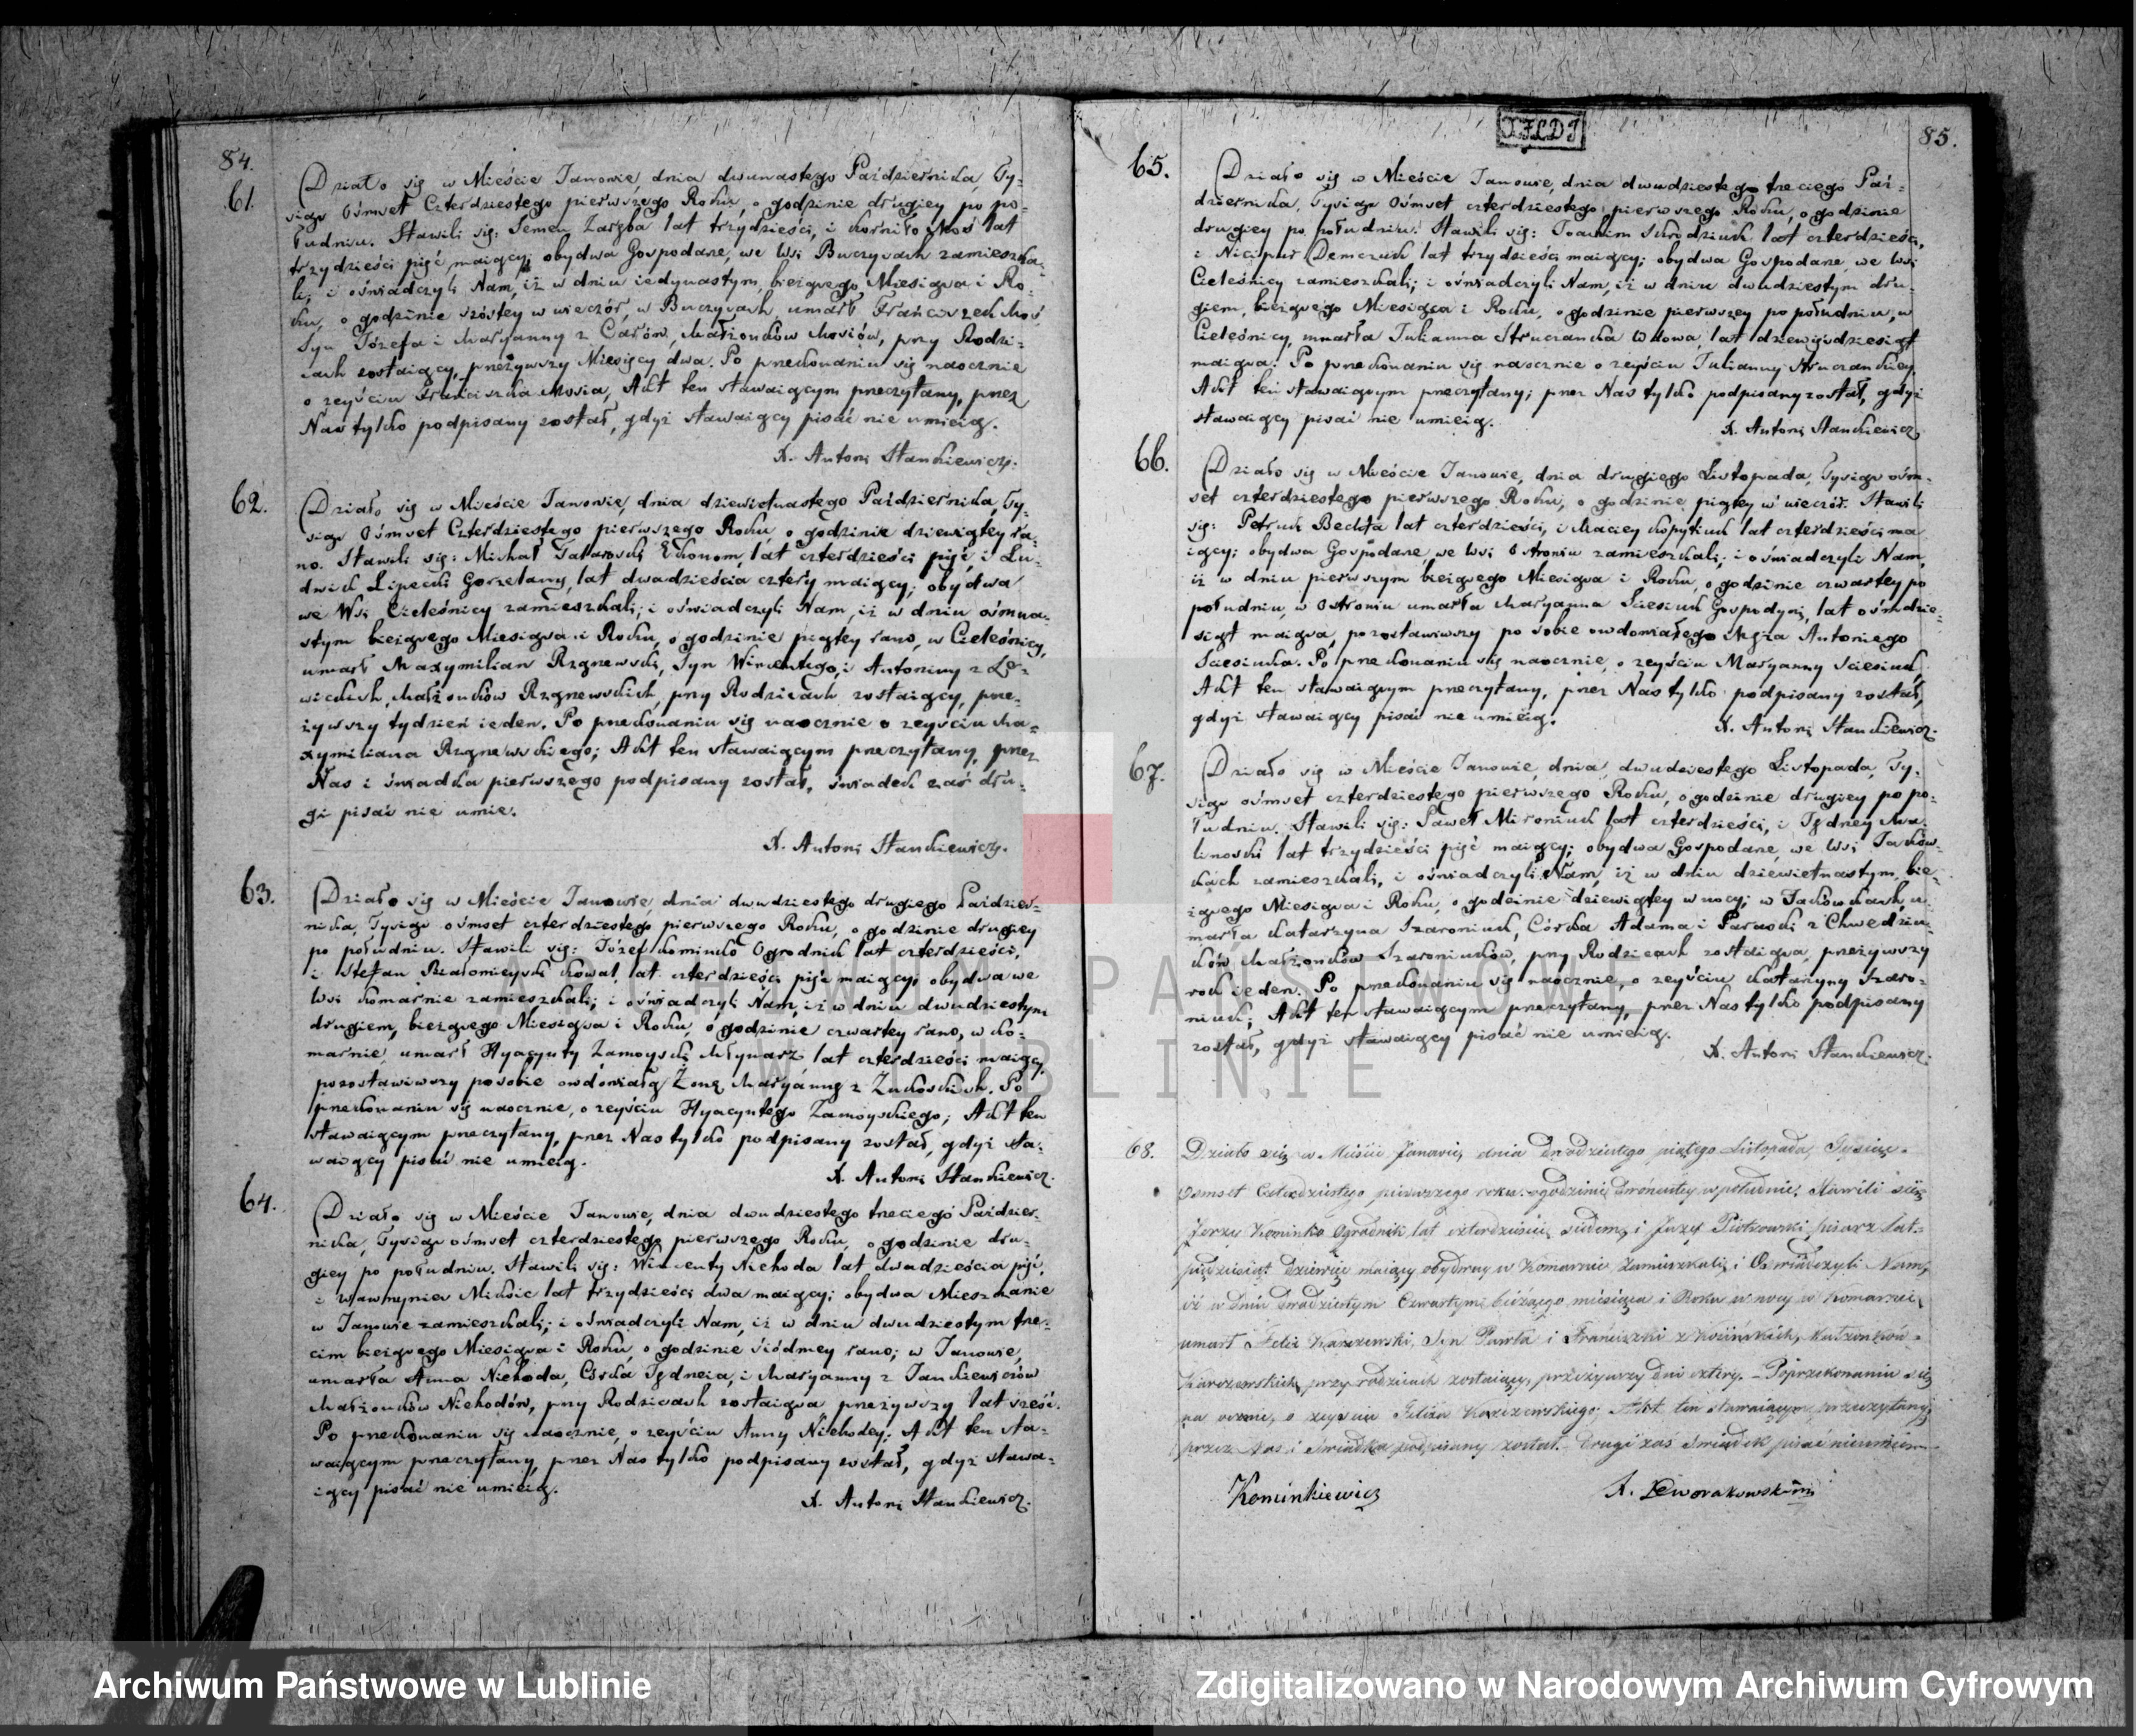 84.
61.
Działo się w Mieście Janowie, dnia dwunastego Października, Ty-
siąc Ośmset Czterdziestego pierwszego Roku, o godzinie drugiey po po-
łudniu. Stawili się: Semen Zaręba lat trzydzieści, i Korniło Moś lat
trzydzieści pięć maiący; obydwa Gospodarze, we Wsi Buczycach zamieszka-
li; i oświadczyli Nam, iż w dniu iedynastym, bieżącego Miesiąca i Ro-
ku, o godzinie szóstey w wieczór, w Buczycach, umarł Franciszek Moś,
Syn Józefa i Maryanny z Carów, Małżonków Mosiów, przy Rodzi-
cach zostaiący, przeżywszy Miesięcy dwa. Po przekonaniu się naocznie
o zeyściu Franciszka Mosia, Akt ten stawaiącym przeczytany, przez
Nas tylko podpisany został, gdyż stawaiący pisać nie umieią.
X. Antoni Stankiewicz.
62.
Działo się w Mieście Janowie, dnia dziewiętnastego Października, Ty-
siąc Ośmset Czterdziestego pierwszego Roku, o godzinie dziewiątey ra-
no. Stawili się: Michał Ekonom, lat czterdzieści pięć, i Lu-
dwik Lipecki Gorzelany, lat dwadzieścia cztery maiący; obydwa
we Wsi Cieleśnicy zamieszkali; i oświadczyli Nam, iż w dniu ośmna-
stym bieżącego Miesiąca i Roku, o godzinie piątey rano, w Cieleśnicy,
umarł Maxymilian Rzgnewski, Syn Wincentego, i Antoniny z Le-
wickich, Małżonków Rzgnewskich, przy Rodzicach zostaiący, prze-
żywszy tydzień ieden. Po przekonaniu się naocznie o zeyściu Ma-
xymiliana Rzgnewskiego; Akt ten stawaiącym przeczytany, przez
Nas i świadka pierwszego podpisany został, świadek zaś dru-
gi pisać nie umie.
X. Antoni Stankiewicz.
63.
Działo się w Mieście Janowie, dnia dwudziestego drugiego Paździer-
nika, Tysiąc ośmset czterdziestego pierwszego Roku, o godzinie drugiey
po południu. Stawili się: Józef Kominko Ogrodnik lat czterdzieści,
i Stefan Białomieyski Kowal, lat czterdzieści pięć maiący; obydwa we
Wsi Komarnie zamieszkali; i oświadczyli Nam, iż w dniu dwudziestym
drugiem, bieżącego Miesiąca i Roku, o godzinie czwartey rano, w Ko-
marnie, umarł Hyacynty Zamoyski, Młynarz, lat czterdzieści maiący,
pozostawiwszy po sobie owdowiałą Żonę, Maryannę z Żukoskich. Po
przekonaniu się naocznie, o zeyściu Hyacyntego Zamoyskiego; Akt ten
stawaiącym przeczytany, przez Nas tylko podpisany został, gdyż sta-
waiący pisać nie umieią.
X. Antoni Stankiewicz.
64.
Działo się w Mieście Janowie, dnia dwudziestego trzeciego Paździer-
nika, Tysiąc ośmset czterdziestego pierwszego Roku, o godzinie dru-
giey po południu. Stawili się: Wincenty Niehoda lat dwadzieścia pięć,
i Wawrzyniec lat trzydzieści dwa maiący; obydwa Mieszczanie
w Janowie zamieszkali; i oświadczyli Nam, iż w dniu dwudziestym trze-
cim bieżącego Miesiąca i Roku, o godzinie siódmey rano; w Janowie,
umarła Anna Niehoda, Córka Jędrzeia, i Maryanny z Jankiewiczów
Małżonków Niehodów, przy Rodzicach zostaiąca przeżywszy lat sześć.
Po przekonaniu się naocznie, o zeyściu Anny Niehody; Akt ten sta-
waiącym przeczytany, przez Nas tylko podpisany został, gdyż stawa-
iący pisać nie umieią.
X. Antoni Stankiewicz.
85.
65.
Działo się w Mieście Janowie, dnia dwudziestego trzeciego Paź-
dziernika, Tysiąc Ośmset czterdziestego pierwszego Roku, o godzinie
drugiey po południu. Stawili się: Joachim lat czterdzieści,
i Nicipur Demczuk lat trzydzieści maiący; obydwa Gospodarze we Wsi
Cieleśnicy zamieszkali; i oświadczyli Nam, iż w dniu dwudziestym dru-
giem, bieżącego Miesiąca i Roku, o godzinie pierwszey po południu, w
Cieleśnicy, umarła Julianna Struczanka Wdowa, lat dziewięćdziesiąt
maiąca. Po przekonaniu się naocznie o zeyściu Julianny Struczankiey,
Akt ten stawaiącym przeczytany; przez Nas tylko podpisany został, gdyż
stawaiący pisać nie umieią.
X. Antoni Stankiewicz.
66.
Działo się w Mieście Janowie, dnia drugiego Listopada, Tysiąc ośm-
set czterdziestego pierwszego Roku, o godzinie piątey w wieczór. Stawili
się: Petruk Bechta lat czterdzieści, i Maciey Kopytiuk lat czterdzieści ma-
iący; obydwa Gospodarze, we Wsi Ostrowiu zamieszkali; i oświadczyli Nam,
iż w dniu pierwszym bieżącego Miesiąca i Roku, o godzinie czwartey po
południu, w Ostrowiu umarła Maryanna Sciesiuk Gospodyni, lat ośmdzie-
siąt maiąca, pozostawiwszy po sobie owdowiałego Męża Antoniego
Sciesiuka. Po przekonaniu się naocznie, o zeyściu Maryanny Sciesiuk,
Akt ten stawaiącym przeczytany, przez Nas tylko podpisany został,
gdyż stawaiący pisać nie umieią.
X. Antoni Stankiewicz.
67.
Działo się w Mieście Janowie, dnia dwudziestego Listopada, Ty-
siąc ośmset czterdziestego pierwszego Roku, o godzinie drugiey po po-
łudniu. Stawili się: Paweł Mironiuk lat czterdzieści, i Jędrzey Ma-
linoski lat trzydzieści pięć maiący; obydwa Gospodarze, we Wsi Jaków-
kach zamieszkali, i oświadczyli Nam, iż w dniu dziewiętnastym, bie-
żącego Miesiąca i Roku, o godzinie dziewiątey w nocy, w Jakówkach, u-
marła Katarzyna Szaroniuk, Córka Adama i Paraski z Chwedziu-
ków Małżonków Szaroniuków, przy Rodzicach zostaiąca, przeżywszy
rok ieden. Po przekonaniu się naocznie, o zeyściu Katarzyny Szaro-
niuk; Akt ten stawaiącym przeczytany, przez Nas tylko podpisany
został, gdyż stawaiący pisać nie umieią.
X. Antoni Stankiewicz.
68.
Działo się w Mieście Janowie, dnia dwudziestego piątego Listopada, Tysiąc
Osmset Czterdziestego pierwszego roku, o godzinie dwónastey w południe. Stawili się
Jerzy Kominko Ogrodnik lat czterdzieści siedem, i Józef Piotrowski pisarz lat
pięćdziesiąt dziewięć maiący obydway w Komarnie zamieszkali, i Oświadczyli Nam,
iż w dniu dwudziestym Czwartym bieżącego miesiąca i Roku w nocy w Komarnie,
umarł Felix Karczewski, Syn Pawła i Franciszki z Kozińskich, Małżonków
Karczewskich, przy rodzicach zostaiący, przeżywszy dni cztery. – Po przekonaniu się
na ocznie, o zeyściu Felixa Karczewskiego; Akt ten stawaiącym przeczytany,
przez Nas i Swiadka podpisany został. – Drugi zaś Swiadek pisać nieumie
Kominkiewicz
X. Dworakowski
ARCHIWUM PAŃSTWOWE
W LUBLINIE
Archiwum Państwowe w Lublinie
Zdigitalizowano w Narodowym Archiwum Cyfrowym